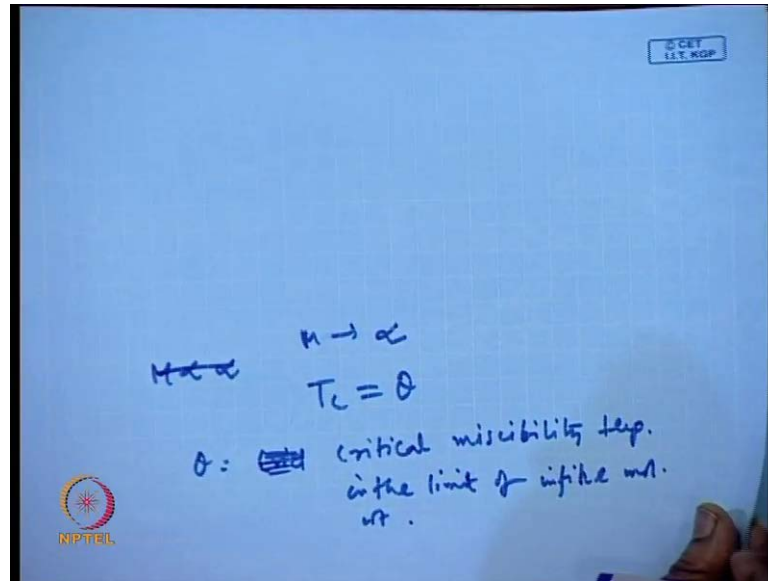 © CET
I.I.T. KGP
M → ∝
T_c = θ
θ : critical miscibility temp.
in the limit of infite mol.
wt .
NPTEL